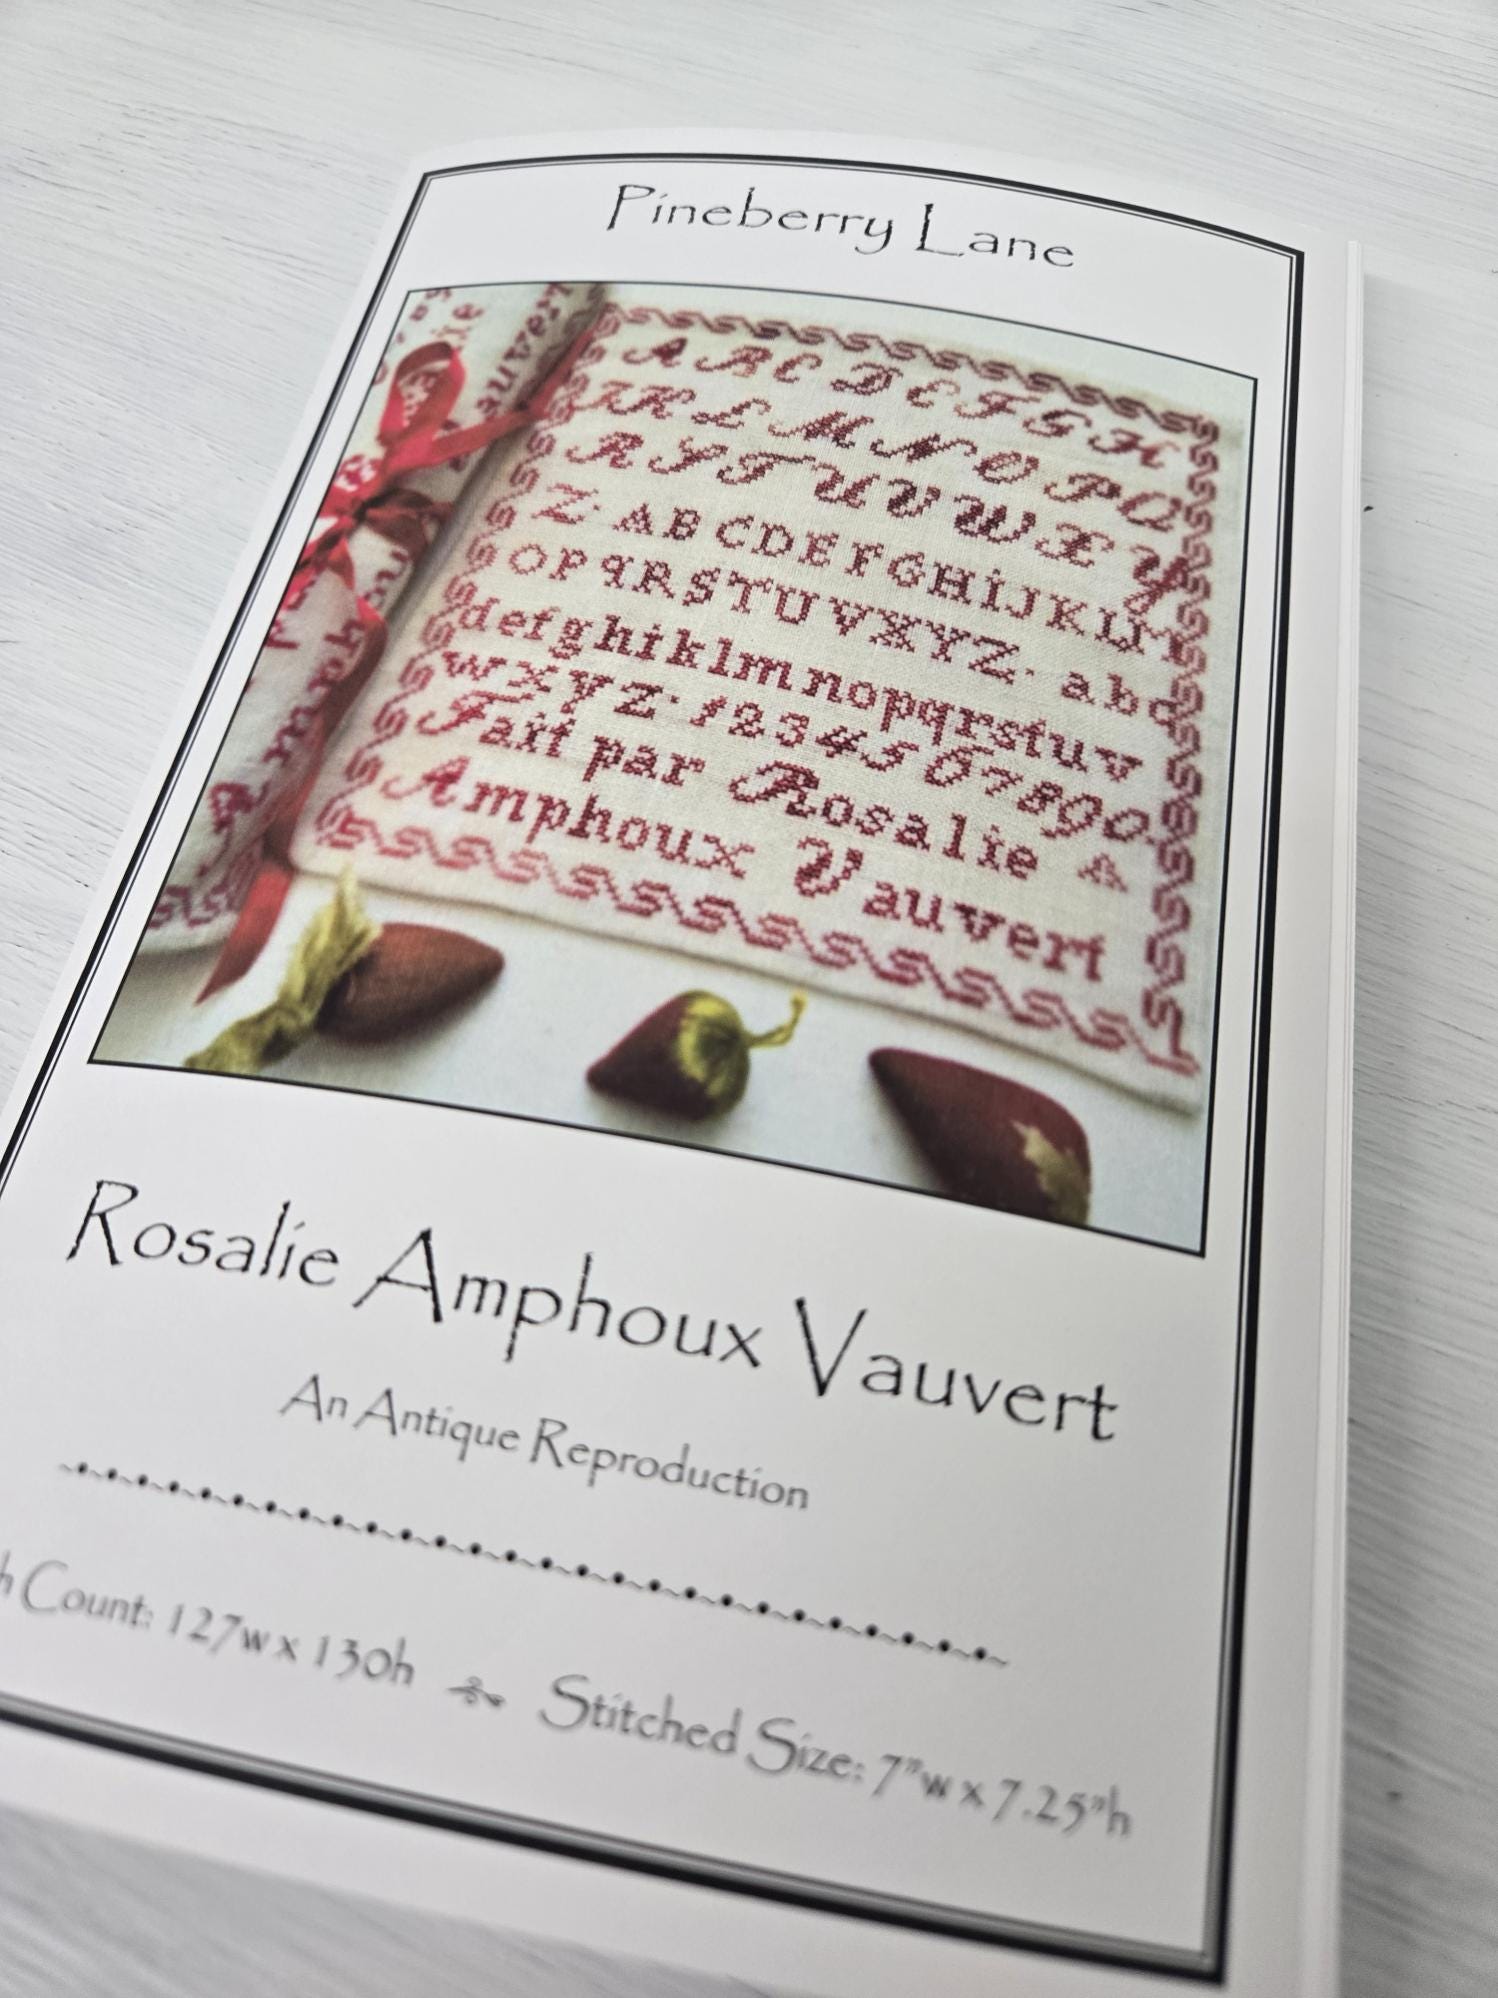 Pineberry Lane
A B C D E F G H
I K L M N O P Q
R S T U V W X Y
Z· A B C D E F G H I J K L
O P Q R S T U V X Y Z· a b c
d e f g h i k l m n o p q r s t u v
w x y z· 1 2 3 4 5 6 7 8 9 0
Fait par Rosalie
Amphoux Vauvert
Rosalie Amphoux Vauvert
An Antique Reproduction
Count: 127w x 130h Stitched Size: 7"w x 7.25"h